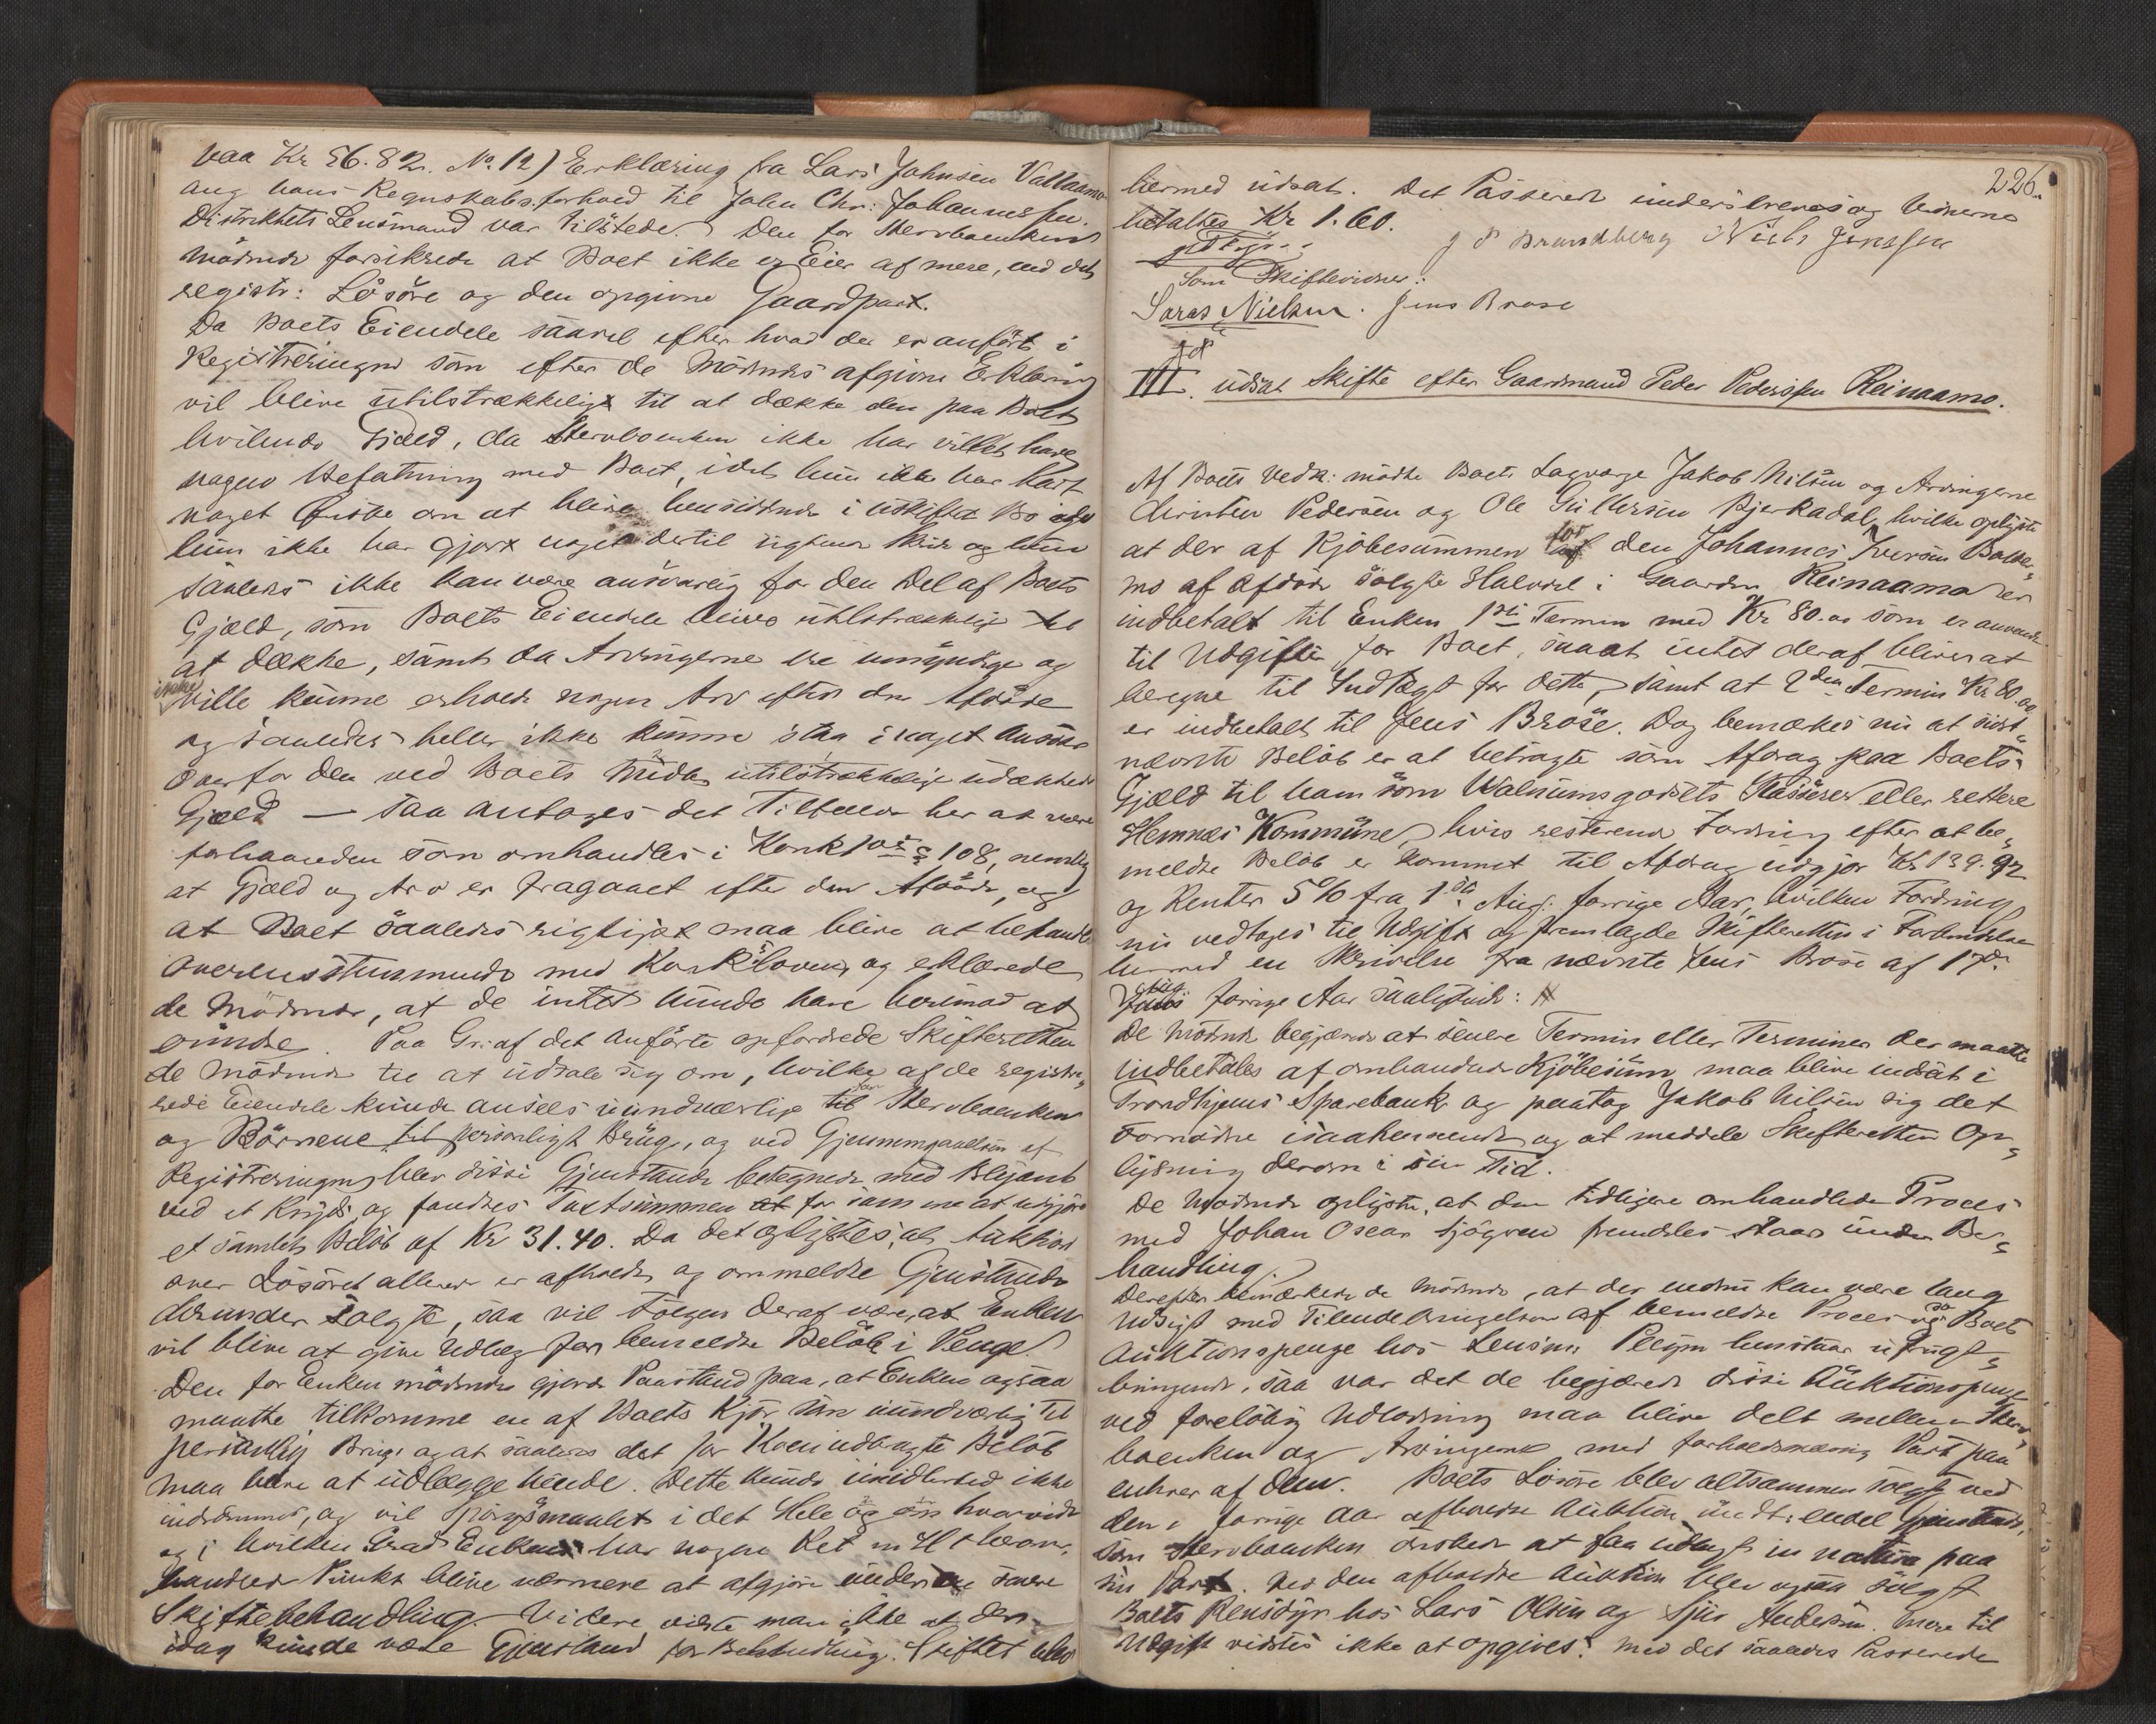 paa Kr 56.82. No 12) Erklæring fra Lars Johnsen Vallaamo
ang hans Regnskabsforhold til John Chr: Johannessen.
Distriktets Lensmand var tilstede. Den for Stervboenken
mødende forsikrede at Boet ikke er Eier af mere, end det
registr: Løsøre og den opgivne Gaardpart.
Da Boets Eiendele saavel efter hvad der er anført i
Registreringen som efter de Mødendes afgivne Erklæring
vil blive utilstrækkeligt til at dække den paa Boet
hvilende Gjæld, da Stervboenken ikke har villet have
nogen Befatning med Boet, idet hun ikke har havt
noget Ønske om at blive hensiddende i uskiftet Bo idet
hun ikke har gjort noget dertil sigtende Skridt og hun
saaledes ikke kan være ansvarlig for den Del af Boets
Gjæld, som Boets Eiendele blive utilstrækkelige til
at dække, samt da Arvingerne ere umyndige og
ikke
ville kunne erholde nogen Arv efter den Afdøde
og saaledes heller ikke kunne staa i noget Ansvar
overfor den ved Boets Midler utilstrækkelige udækkede
Gjæld — saa antages det Tilfælde her at være
forhaanden som omhandles i Konk § 108, nemlig
at Gjæld og Arv er fragaaet efter den Afdøde, og
at Boet saaledes rigtigst maa blive at behandle
overensstemmende med Konkloven, og erklærede
de Mødende, at de intet kunde have herimod at
erindre. Paa Gr: af det anførte opfordrede Skifteretten
de Mødende til at udtale sig om, hvilke af de registre-
rede Eiendele kunde ansees uundværlige for Stervboenken
og Børnene til personligt Brug, og ved Gjennemgaaelsen af
Registreringen blev disse Gjenstande betegnede med Blyant
ved et Kryds og fandtes Taxtsummen for samme at udgjøre
et samlet Beløb af Kr 31.40. Da det oplystes, at Auktion
over Løsøret allerede er afholdt, og ommeldte Gjenstande
derunder solgte, saa vil Følgen deraf være, at Enken
vil blive at give Udlæg for bemeldte Beløb i Penge.
Den for Enken mødende gjorde Paastand paa, at Enken ogsaa
maatte tilkomme en af Boets Kjør som uundværlig til
personlig Brug og at saaledes det for Koen indbragte Beløb
maa være at udlægge hende. Dette kunde imidlertid ikke
indrømmes, og vil Spørgsmaalet i det Hele og om hvorvidt
og i hvilken Grad Enken har nogen Ret
Punkt blive nærmere at afgjøre under senere
Skiftebehandling. Videre vidste man ikke at der
idag kunde være Gjenstand for Behandling. Skiftet blev
226.
hermed udsat. Det Passerede underskreves og Vidnerne
betaltes Kr 1.60.
J P Brundberg Niels Jenssen
Som Skiftevidner:
Søren Nielsen. Jens Brose
III. udsat Skifte efter Gaardmand Peder Pederssen Reinaamo.
Af Boets Vedk: mødte Boets Lagværge Jakob Nilsen og Arvingerne
Christen Pedersen og Ole Gullersen Bjerkadal, hvilke oplyste
at der af Kjøbesummen for den Johannes Iversen
mo af Afdøde solgte Halvdel i Gaarden Reinaamo er
indbetalt til Enken 1ste Termin med Kr 80.00 som er anvendt
til Udgifter for Boet, saaat intet deraf bliver at
beregne til Indtægt for dette, samt at 2den Termin Kr 80.00
er indbetalt til Jens Brose. Dog bemærkes nu at sidst-
nævnte Beløb er at betragte som Afdrag paa Boets
Gjæld til ham som Walnumsgodsets Kasserer eller rettere
Hemnæs Kommune, hvis resterende Fordring efter at be-
meldte Beløb er kommet til Afdrag udgjør Kr 139.92
og Renter 5% fra 1ste Aug: forrige Aar, hvilken Fordring
nu vedtages til Udgift og fremlagde Skifteretten i Forbindelse
hermed en Skrivelse fra nævnte Jens Brose af 17de
Aug
forrige Aar saalydende:
De Mødende begjærede at senere Termin eller Terminer der maatte
indbetales af omhandlede Kjøbesum maa blive indsat i
Trondhjems Sparebank og paatog Jakob Nilsen sig det
Fornødne isaahenseende og at meddele Skifteretten Op-
lysning derom i sin Tid.
De Mødende oplyste, at den tidligere omhandlede Proces
med Johan Oscar Sjögren fremdeles staar under Be-
handling.
Derefter bemærkede de Mødende, at der endnu kan være lang
Udsigt med Tilendebringelsen af bemeldte Proces og da Boets
Auktionspenge hos Lensm: Pleym henstaar ufrugt-
bringende, saa var det de begjærede disse Auktionspenge
ved foreløbig Udlodning maa blive delt mellem Sterv-
boenken og Arvingerne med forholdsmæssig Part paa
enhver af dem. Boets Løsøre blev altsammen solgt ved
den i forrige Aar afholdte Auktion undt: endel Gjenstande,
som Stervboenken ønskede at faa udlagt in natura paa
sin Part. Ved den afholdte Auktion blev ogsaa solgt
Boets Rensdyr hos Lars Olsen og Sjur Andersen. Mere til
Udgift vidstes ikke at opgives. Med det saaledes Passerede